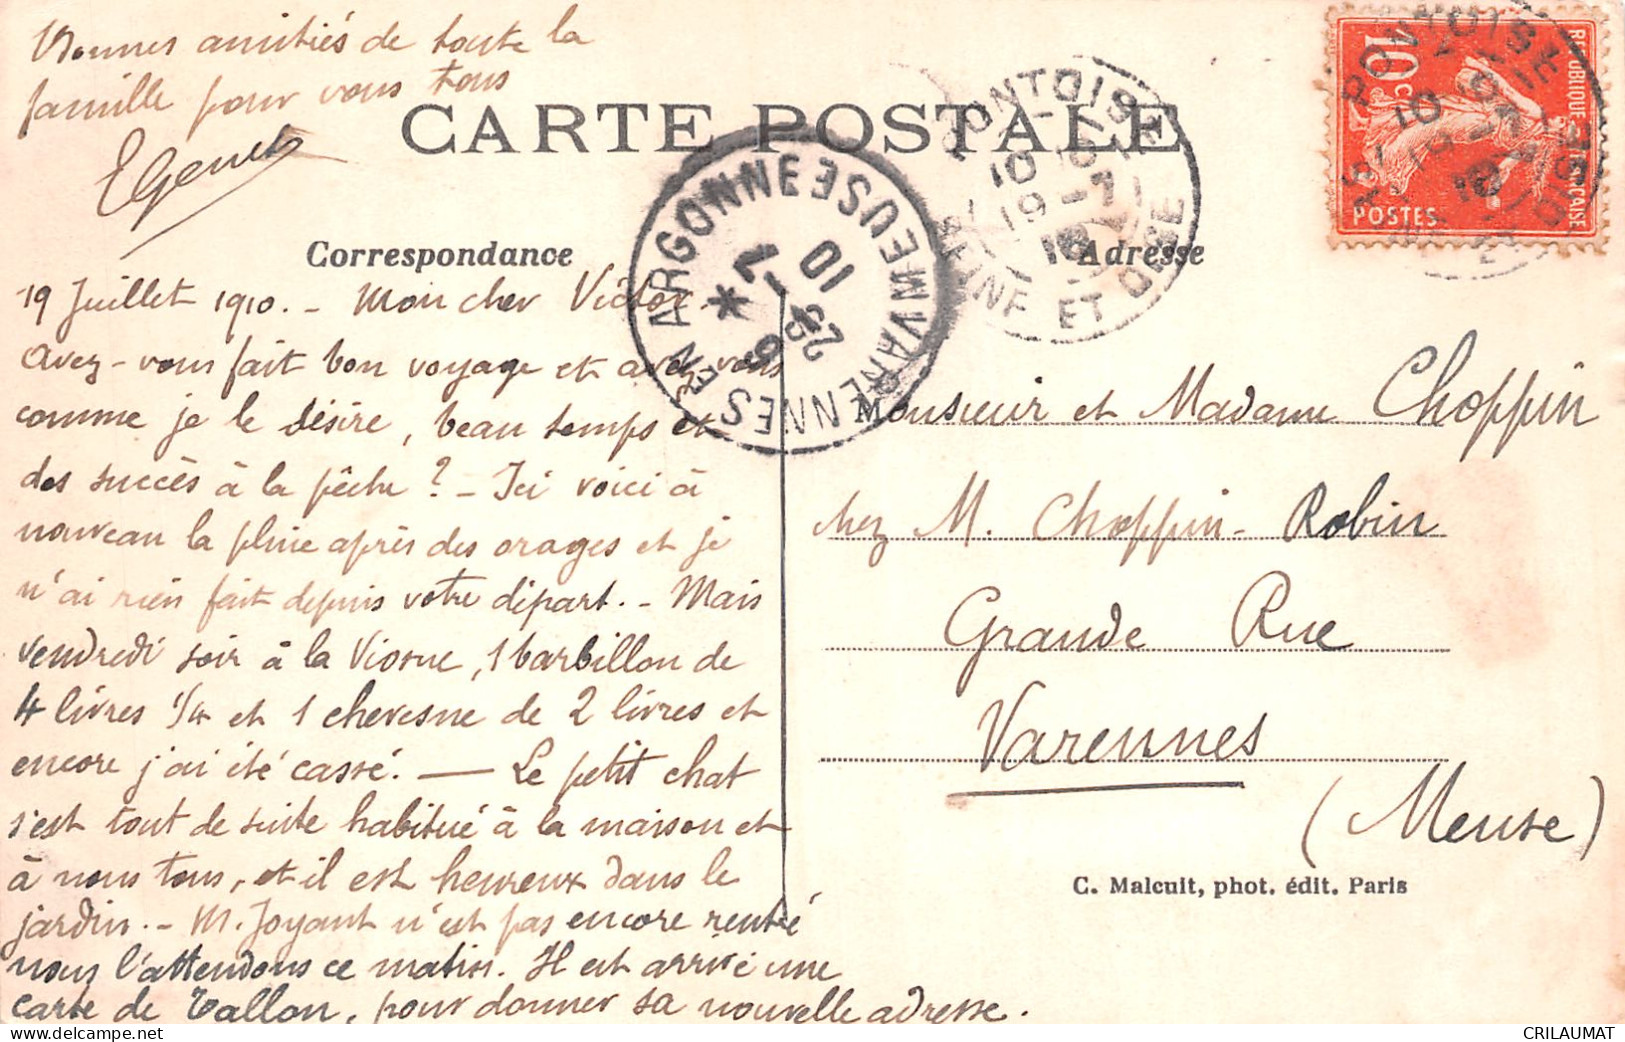 Bonnes amitiés de toute la
famille pour vous tous
EGenet
CARTE POSTALE
Correspondance
Adresse
19 Juillet 1910. - Mon cher Victor.
Avez-vous fait bon voyage et avez vous
comme je le désire, beau temps et
des succès à la pêche ? - Ici voici à
nouveau la pluie après des orages et je
n'ai rien fait depuis votre départ. - Mais
vendredi soir à la Viosne, 1 barbillon de
4 livres 1/4 et 1 chevesne de 2 livres et
encore j'ai été cassé. — Le petit chat
s'est tout de suite habitué à la maison et
à nous tous, et il est heureux dans le
jardin. - M. Joyant n'est pas encore rentré
nous l'attendons ce matin. Il est arrivé une
carte de Tallon, pour donner sa nouvelle adresse.
Monsieur et Madame Choppin
chez M. Choppin-Robin
Grande Rue
Varennes
(Meuse)
C. Malcuit, phot. édit. Paris
VARENNES EN ARGONNE MEUSE
PONTOISE
SEINE ET OISE
PONTOISE
10c
REPUBLIQUE FRANÇAISE
POSTES
CRILAUMAT